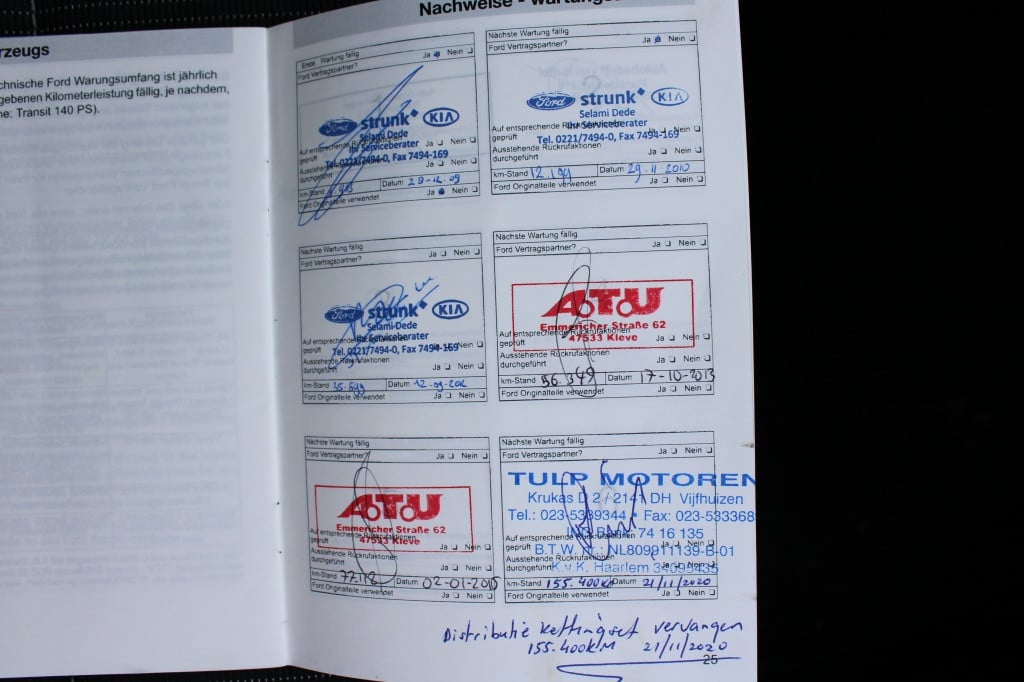 rzeugs
chnische Ford Warungsumfang ist jährlich
gebenen Kilometerleistung fällig, je nachdem,
ne: Transit 140 PS).
Nachweise -
Erste Wartung fällig
Ford Vertragspartner? Ja Nein
Ford strunk KIA
Selami Dede
Ihr Serviceberater
Tel. 0221/7494-0, Fax 7494-169
Auf entsprechende Rückrufaktionen
geprüft Ja Nein
Ausstehende Rückrufaktionen
durchgeführt Ja Nein
km-Stand Datum
Ford Originalteile verwendet Ja Nein
Nächste Wartung fällig
Ford Vertragspartner? Ja Nein
Ford strunk KIA
Selami Dede
Ihr Serviceberater
Tel. 0221/7494-0, Fax 7494-169
Auf entsprechende Rückrufaktionen
geprüft Ja Nein
Ausstehende Rückrufaktionen
durchgeführt Ja Nein
km-Stand Datum 29.11.2010
Ford Originalteile verwendet Ja Nein
Nächste Wartung fällig
Ford Vertragspartner? Ja Nein
Ford strunk KIA
Selami Dede
Ihr Serviceberater
Tel. 0221/7494-0, Fax 7494-169
Auf entsprechende Rückrufaktionen
geprüft Ja Nein
Ausstehende Rückrufaktionen
durchgeführt Ja Nein
km-Stand Datum
Ford Originalteile verwendet Ja Nein
Nächste Wartung fällig
Ford Vertragspartner? Ja Nein
ATU
Emmericher Straße 62
47533 Kleve
Auf entsprechende Rückrufaktionen
geprüft Ja Nein
Ausstehende Rückrufaktionen
durchgeführt Ja Nein
km-Stand 56.349 Datum 17-10-2013
Ford Originalteile verwendet Ja Nein
Nächste Wartung fällig
Ford Vertragspartner? Ja Nein
ATU
Emmericher Straße 62
47533 Kleve
Auf entsprechende Rückrufaktionen
geprüft Ja Nein
Ausstehende Rückrufaktionen
durchgeführt Ja Nein
km-Stand Datum 02-01-2015
Ford Originalteile verwendet Ja Nein
Nächste Wartung fällig
Ford Vertragspartner? Ja Nein
TULP MOTOREN
Krukas D 2 / 2141 DH Vijfhuizen
Tel.: 023-5339344 • Fax: 023-533368
ING Bank 74 16 135
B.T.W. nr.: NL809911139-B-01
K.v.K. Haarlem 34095435
Auf entsprechende Rückrufaktionen
geprüft Ja Nein
Ausstehende Rückrufaktionen
durchgeführt Ja Nein
km-Stand 155.400KM Datum 21/11/2020
Ford Originalteile verwendet Ja Nein
Distributie kettingset vervangen
155.400KM 21/11/2020
25